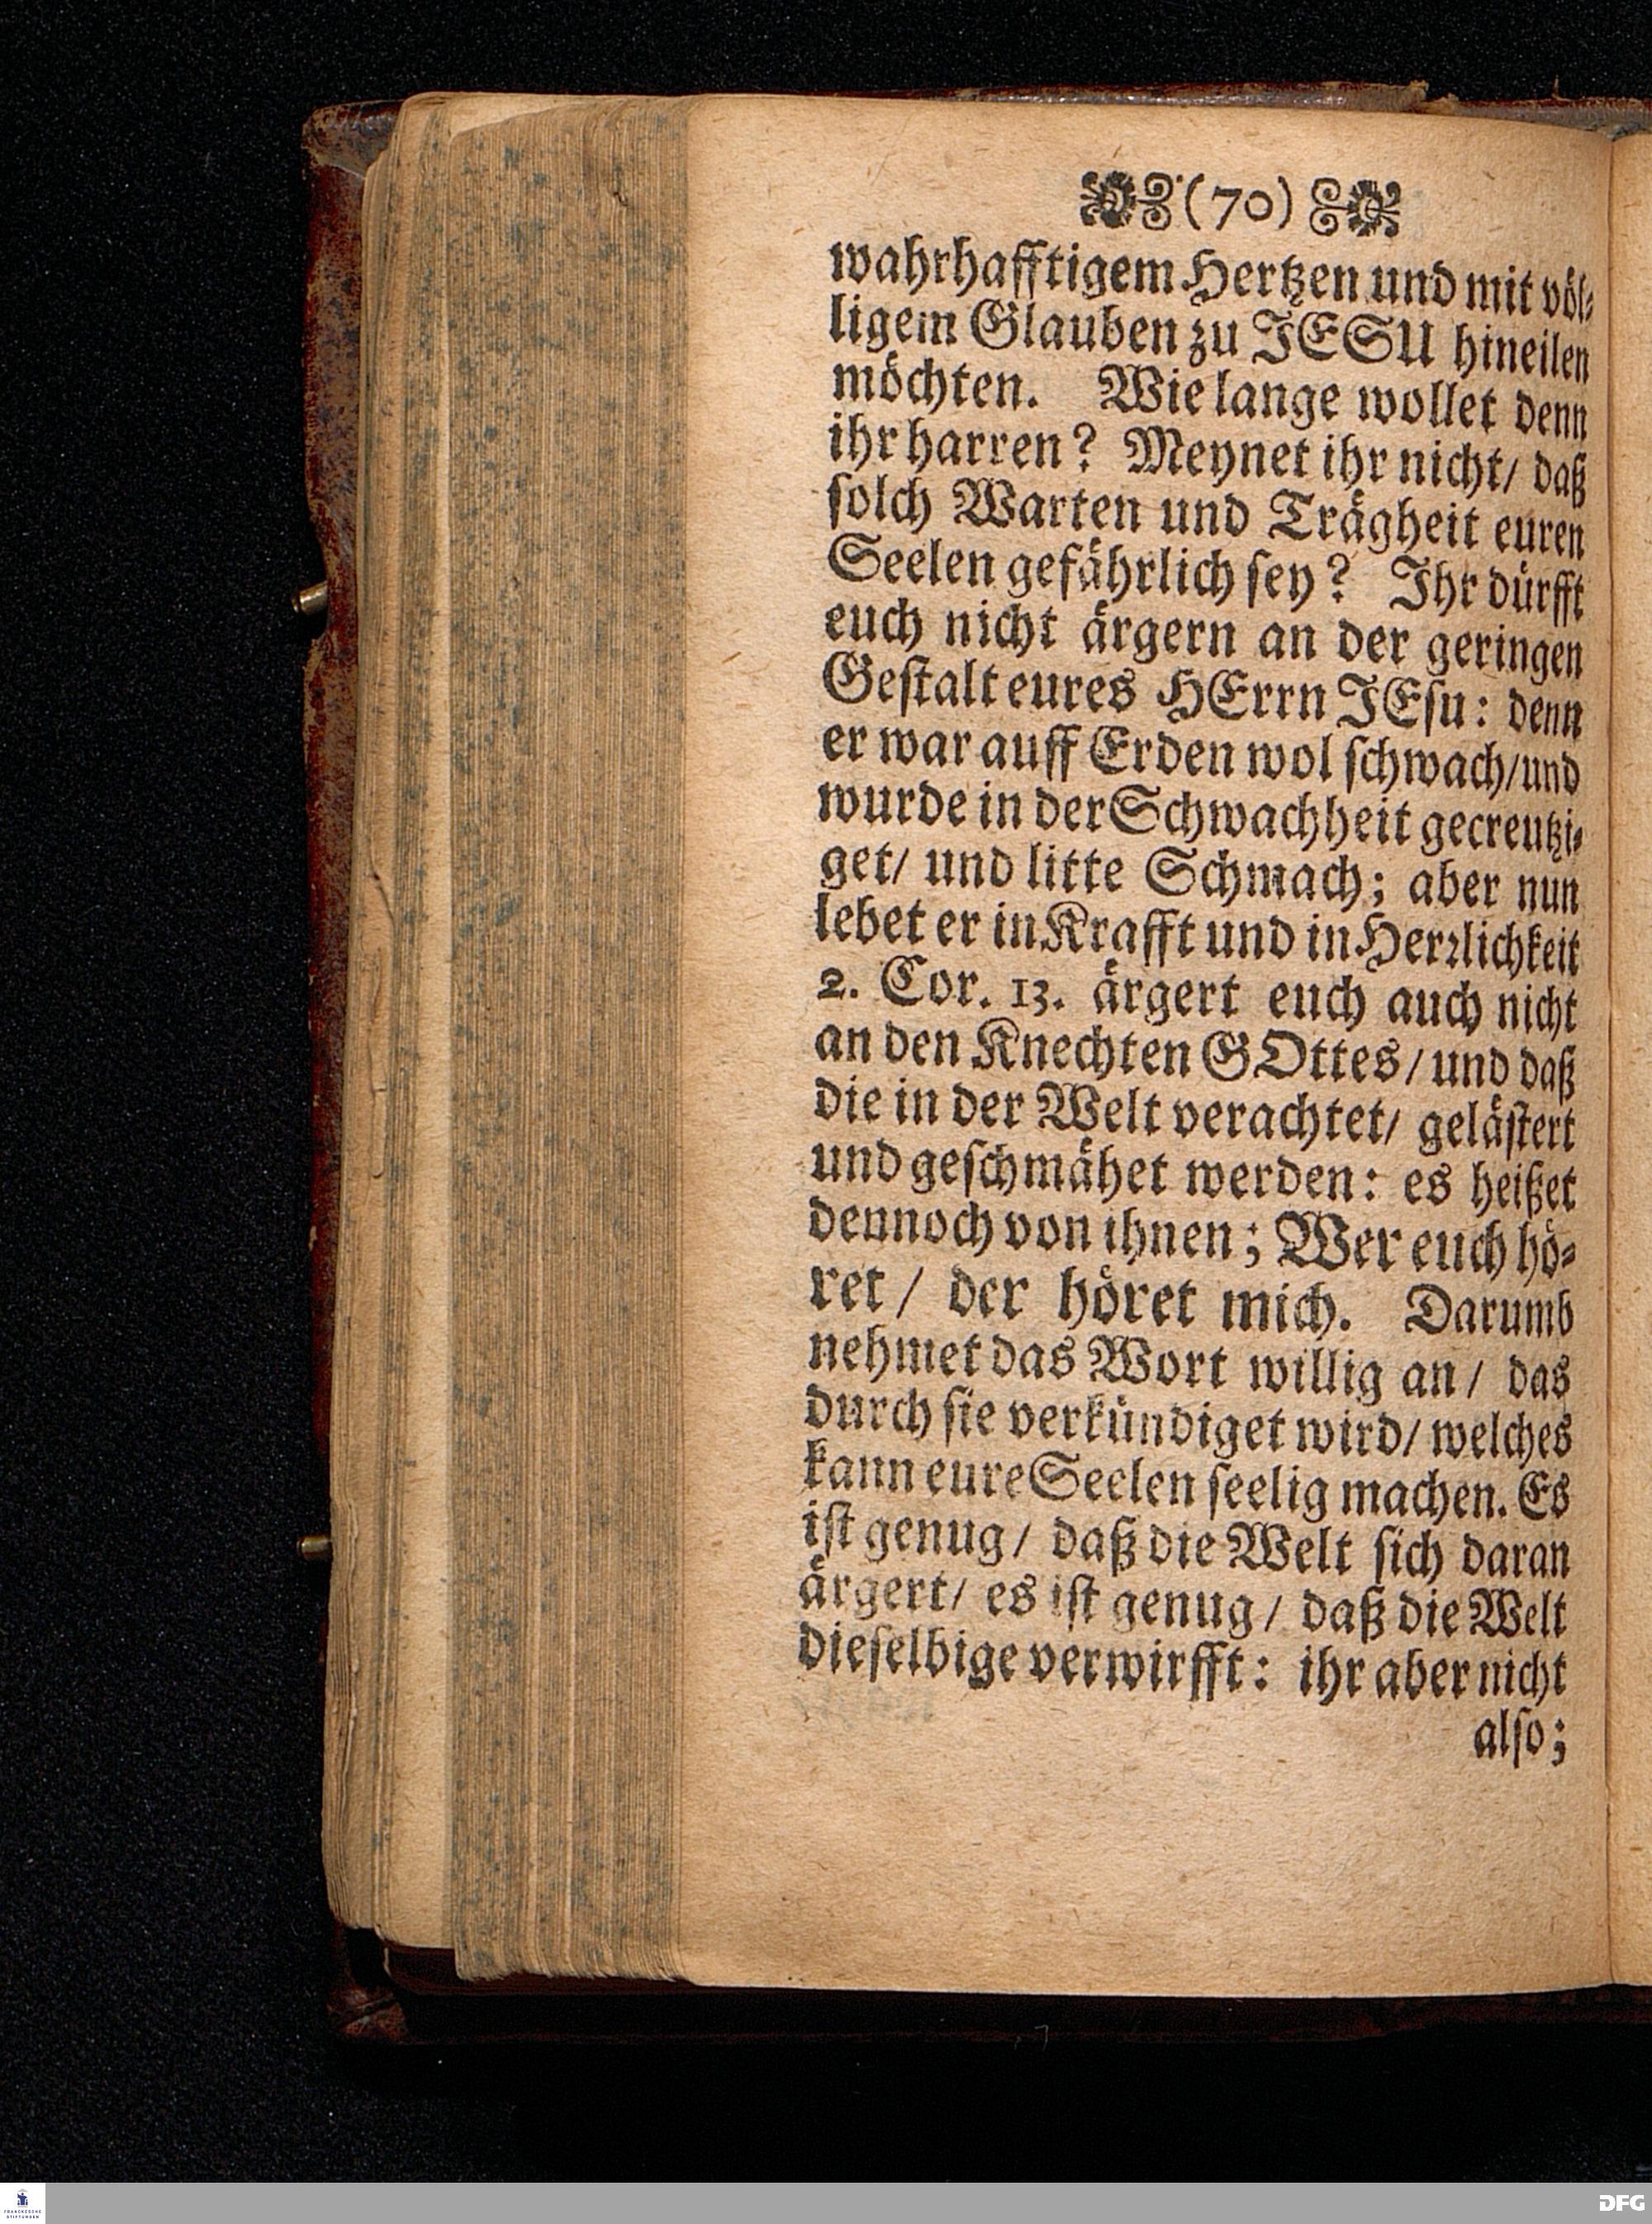 (70)
wahrhafftigem Hertzen und mit völ-
ligem Glauben zu JESU hineilen
möchten. Wie lange wollet denn
ihr harren? Meynet ihr nicht/ daß
solch Warten und Trägheit euren
Seelen gefährlich sey? Ihr dürfft
euch nicht ärgern an der geringen
Gestalt eures HErrn JEsu: denn
er war auff Erden wol schwach/und
wurde in der Schwachheit gecreutzi-
get/ und litte Schmach; aber nun
lebet er in Krafft und in Herrlichkeit
2. Cor. 13. ärgert euch auch nicht
an den Knechten GOttes/ und daß
die in der Welt verachtet/ gelästert
und geschmähet werden: es heißet
dennoch von ihnen; Wer euch hö-
ret/ der höret mich. Darumb
nehmet das Wort willig an/ das
durch sie verkündiget wird/ welches
kann eure Seelen seelig machen. Es
ist genug/ daß die Welt sich daran
ärgert/ es ist genug/ daß die Welt
dieselbige verwirfft: ihr aber nicht
also;
FRANCKESCHE
STIFTUNGEN
DFG